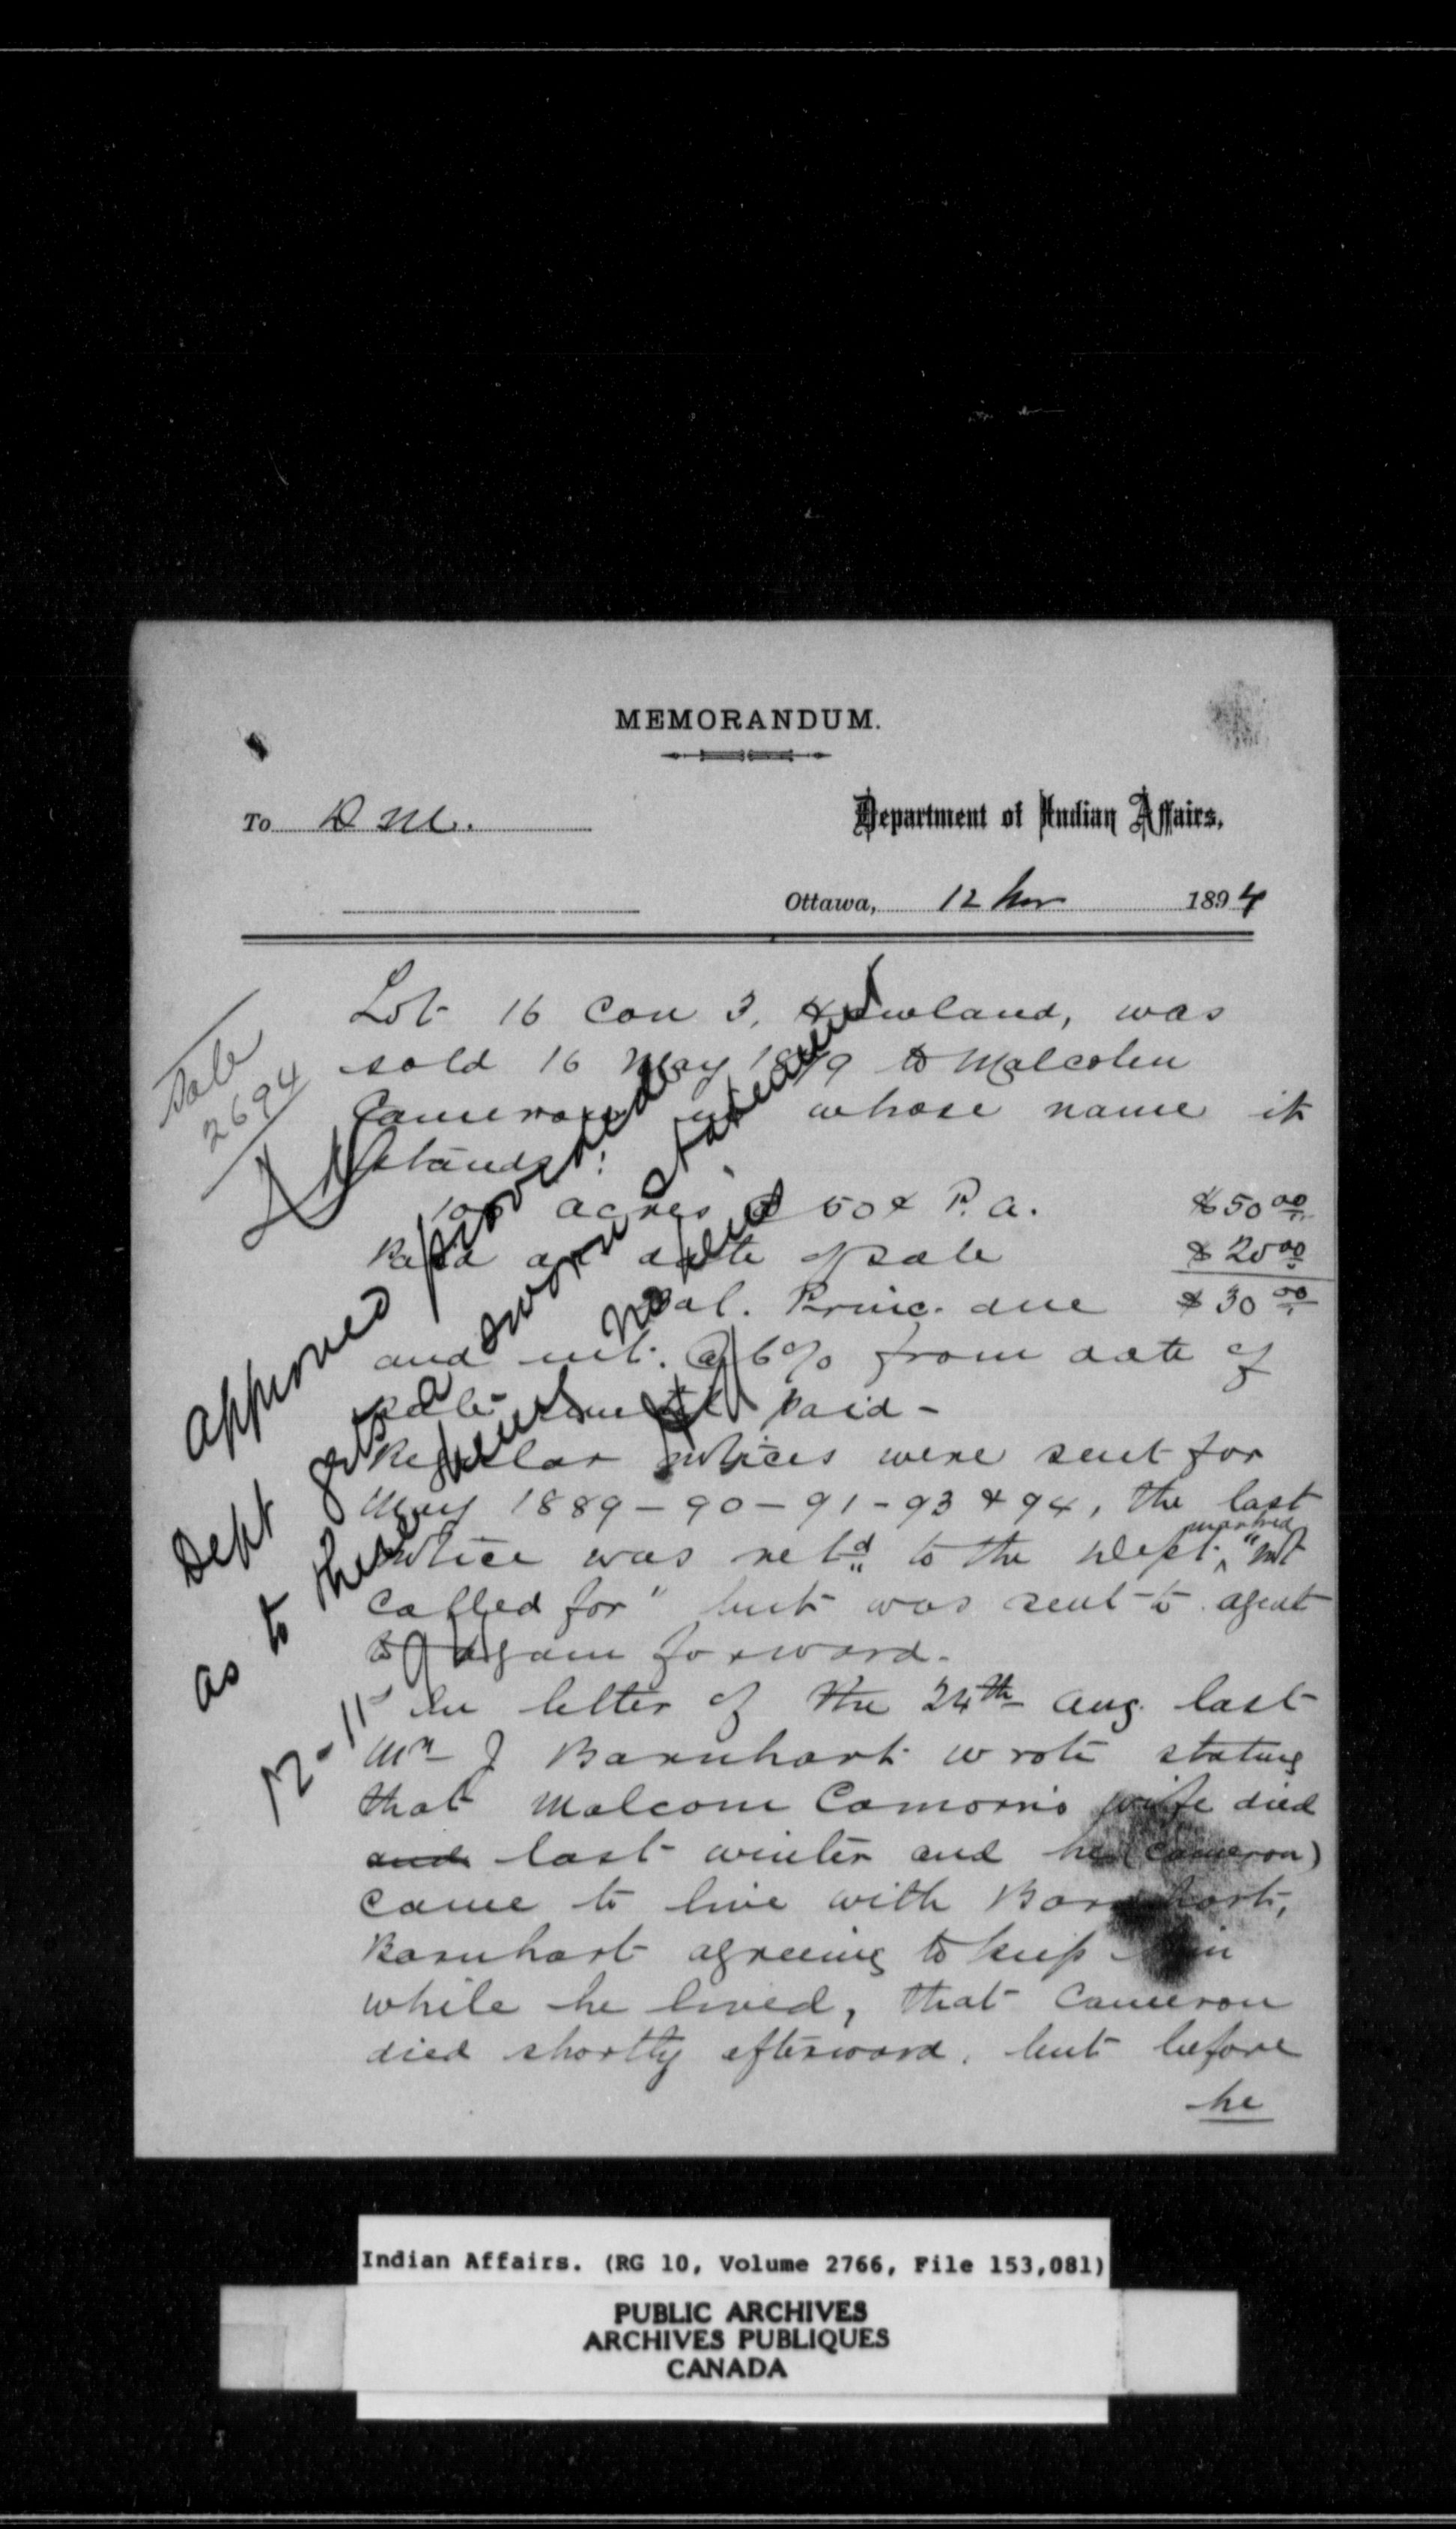 MEMORANDUM.
To D M.
Department of Indian Affairs,
Ottawa, 12 Nov 1894
Sale
2694
Lot 16 Con 3, Howland, was
sold 16 May 1879 to Malcolm
Cameron in whose name it
stands:
100 acres @ 50¢ P. A. $50 00
Paid at date of sale $20 00
Bal. Princ. due $30 00
and int. @ 6% from date of
sale until paid -
Regular notices were sent for
May 1889-90-91-93 & 94, the last
notice was retd to the Dept, marked "not
called for" but was sent to agent
to again forward.
In letter of the 24th Aug. last
Mr J Barnhart wrote stating
that Malcom Camorn's wife died
and last winter and he (Cameron)
came to live with Barnhart,
Barnhart agreeing to keep him
while he lived, that Cameron
died shortly afterward, but before
he
Approved provided
Dept gets a sworn statement
as to there being no
12-11-
Indian Affairs. (RG 10, Volume 2766, File 153,081)
PUBLIC ARCHIVES
ARCHIVES PUBLIQUES
CANADA